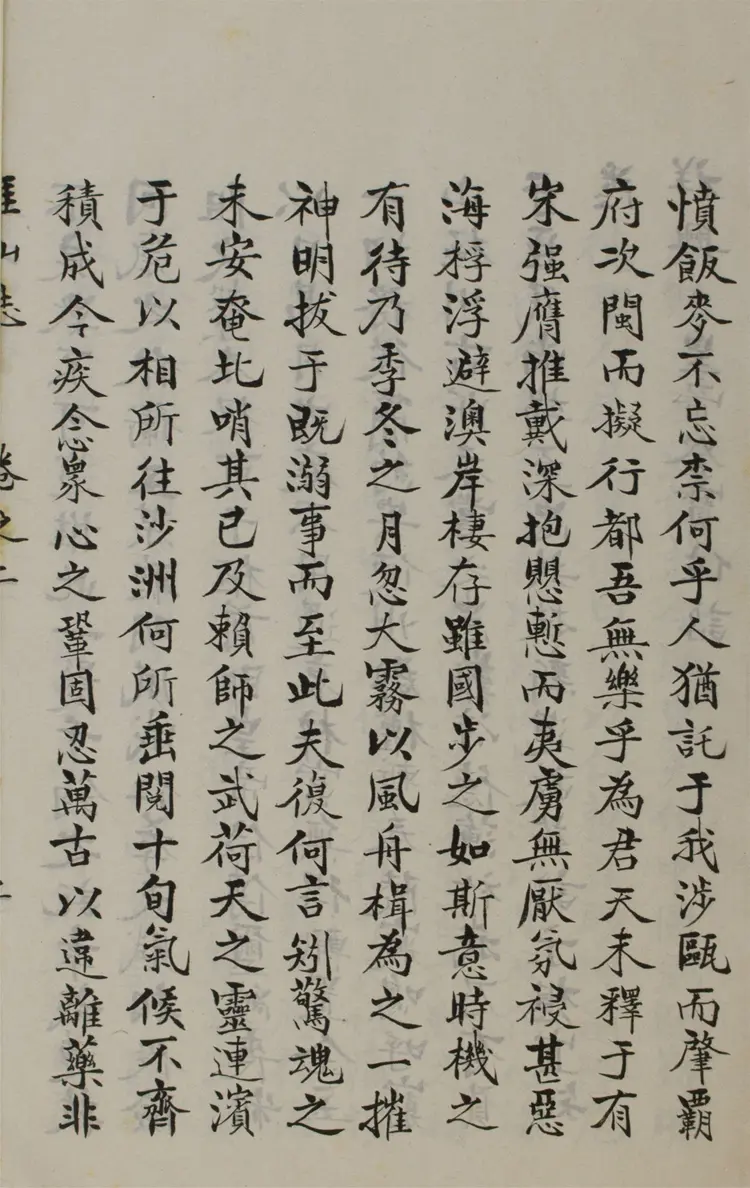 憤飯麥不忘柰何乎人猶託于我涉甌而肇覇
府次閩而擬行都吾無樂乎為君天未釋于有
宋强膺推戴深抱慙慙而夷虜無厭氛祲甚惡
海桴浮避澳岸棲存雖國步之如斯意時機之
有待乃季冬之月忽大霧以風舟楫為之一摧
神明拔于既溺事而至此夫復何言矧驚魂之
未安奄北哨其已及賴師之武荷天之靈連濱
于危以相所往沙洲何所垂閱十旬氣候不齊
積成今疾念衆心之鞏固忍萬古以違離藥非
厓山志 卷之二